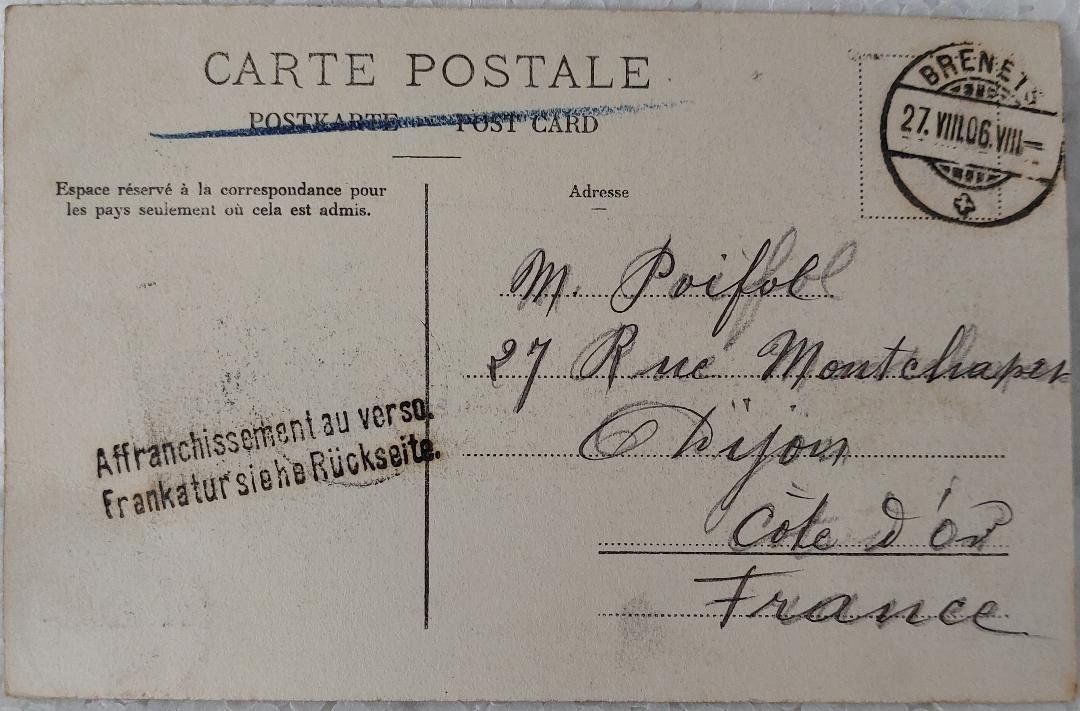 CARTE POSTALE
POSTKARTE — POST CARD
BRENETS
27.VIII.06.VIII—
Espace réservé à la correspondance pour
les pays seulement où cela est admis.
Adresse
M. Poifol
27 Rue Montchapet
Dijon
Côte d'Or
France
Affranchissement au verso.
Frankatur siehe Rückseite.